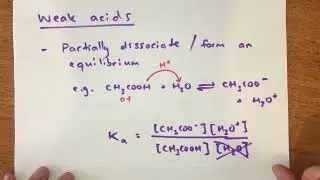 Weak acids
- Partially dissociate / form an
equilibrium
H⁺
e.g. CH₃COOH + H₂O ⇌ CH₃COO⁻
0.1
+ H₃O⁺
Kₐ = [CH₃COO⁻][H₃O⁺]
[CH₃COOH][H₂O]